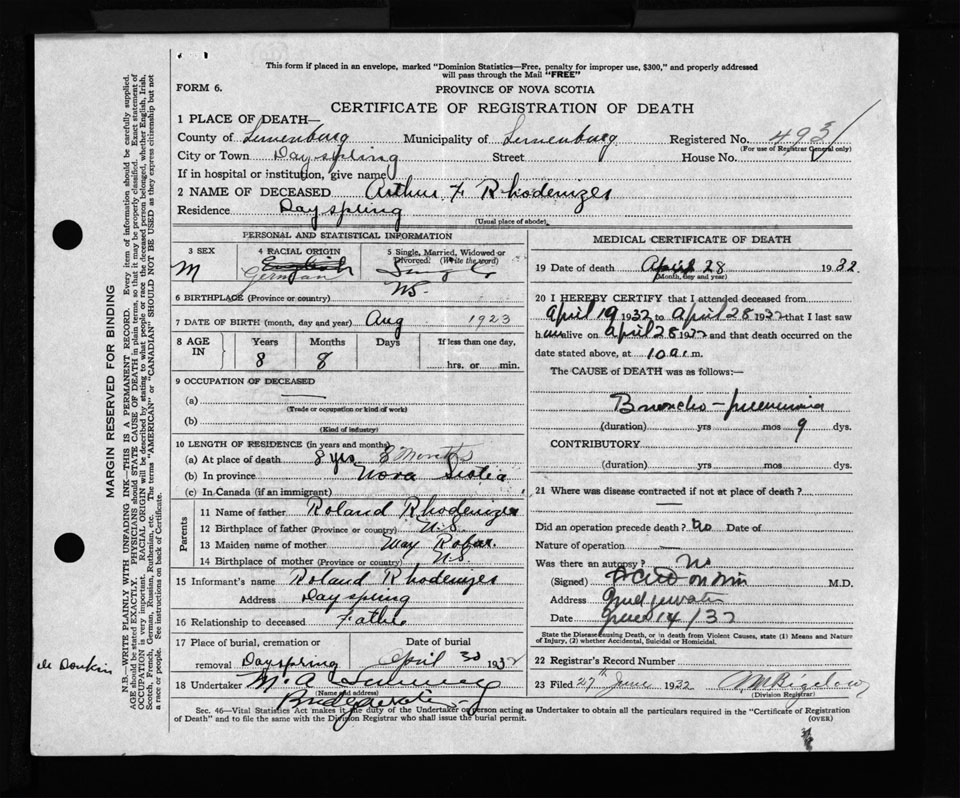 This form if placed in an envelope, marked "Dominion Statistics—Free, penalty for improper use, $300," and properly addressed
will pass through the Mail "FREE"
FORM 6.
PROVINCE OF NOVA SCOTIA
CERTIFICATE OF REGISTRATION OF DEATH
1 PLACE OF DEATH—
County of Lunenburg Municipality of Lunenburg Registered No. 493
(For use of Registrar General only)
City or Town Dayspring Street House No.
If in hospital or institution, give name
2 NAME OF DECEASED Arthur F Rhodenizer
Residence Dayspring
(Usual place of abode)
PERSONAL AND STATISTICAL INFORMATION
3 SEX 4 RACIAL ORIGIN 5 Single, Married, Widowed or
Divorced: (Write the word)
M English German Single
6 BIRTHPLACE (Province or country) NS.
7 DATE OF BIRTH (month, day and year) Aug 1923
8 AGE IN Years Months Days If less than one day,
8 8 hrs. or min.
9 OCCUPATION OF DECEASED
(a)
(Trade or occupation or kind of work)
(b)
(Kind of industry)
10 LENGTH OF RESIDENCE (in years and months)
(a) At place of death 8 yrs 8 Months
(b) In province Nova Scotia
(c) In Canada (if an immigrant)
Parents
11 Name of father Roland Rhodenizer
12 Birthplace of father (Province or country) N.S.
13 Maiden name of mother May Robar.
14 Birthplace of mother (Province or country) NS
15 Informant's name Roland Rhodenizer
Address Dayspring
16 Relationship to deceased Father
17 Place of burial, cremation or Date of burial
removal Dayspring April 30 1932
18 Undertaker M. A
(Name and address)
Bridgewater
MEDICAL CERTIFICATE OF DEATH
19 Date of death April 28 1932
(Month, day and year)
20 I HEREBY CERTIFY that I attended deceased from
April 19 1932 to April 28 1932 that I last saw
h alive on April 28 1932 and that death occurred on the
date stated above, at 10 a.m.
The CAUSE of DEATH was as follows:—
Broncho-pneumonia
(duration) yrs mos 9 dys.
CONTRIBUTORY
(duration) yrs mos dys.
21 Where was disease contracted if not at place of death?
Did an operation precede death? No Date of
Nature of operation
Was there an autopsy? No
(Signed) M.D.
Address Bridgewater
Date June 14/32
State the Disease causing Death, or in death from Violent Causes, state (1) Means and Nature
of Injury, (2) whether Accidental, Suicidal or Homicidal.
22 Registrar's Record Number
23 Filed 27th June 1932 A M Bigelow
(Division Registrar)
Sec. 46—Vital Statistics Act makes it the duty of the Undertaker or person acting as Undertaker to obtain all the particulars required in the "Certificate of Registration
of Death" and to file the same with the Division Registrar who shall issue the burial permit.
(OVER)
MARGIN RESERVED FOR BINDING
N.B.—WRITE PLAINLY WITH UNFADING INK—THIS IS A PERMANENT RECORD. Every item of information should be carefully supplied.
AGE should be stated EXACTLY. PHYSICIANS should STATE CAUSE OF DEATH in plain terms, so that it may be properly classified. Exact statement of
OCCUPATION is very important. RACIAL ORIGIN will be described by stating to what people or race the deceased person belonged, whether English, Irish,
Scotch, French, German, Russian, Ruthenian, etc. The terms "AMERICAN" or "CANADIAN" SHOULD NOT BE USED as they express citizenship but not
a race or people. See instructions on back of Certificate.
Donkin